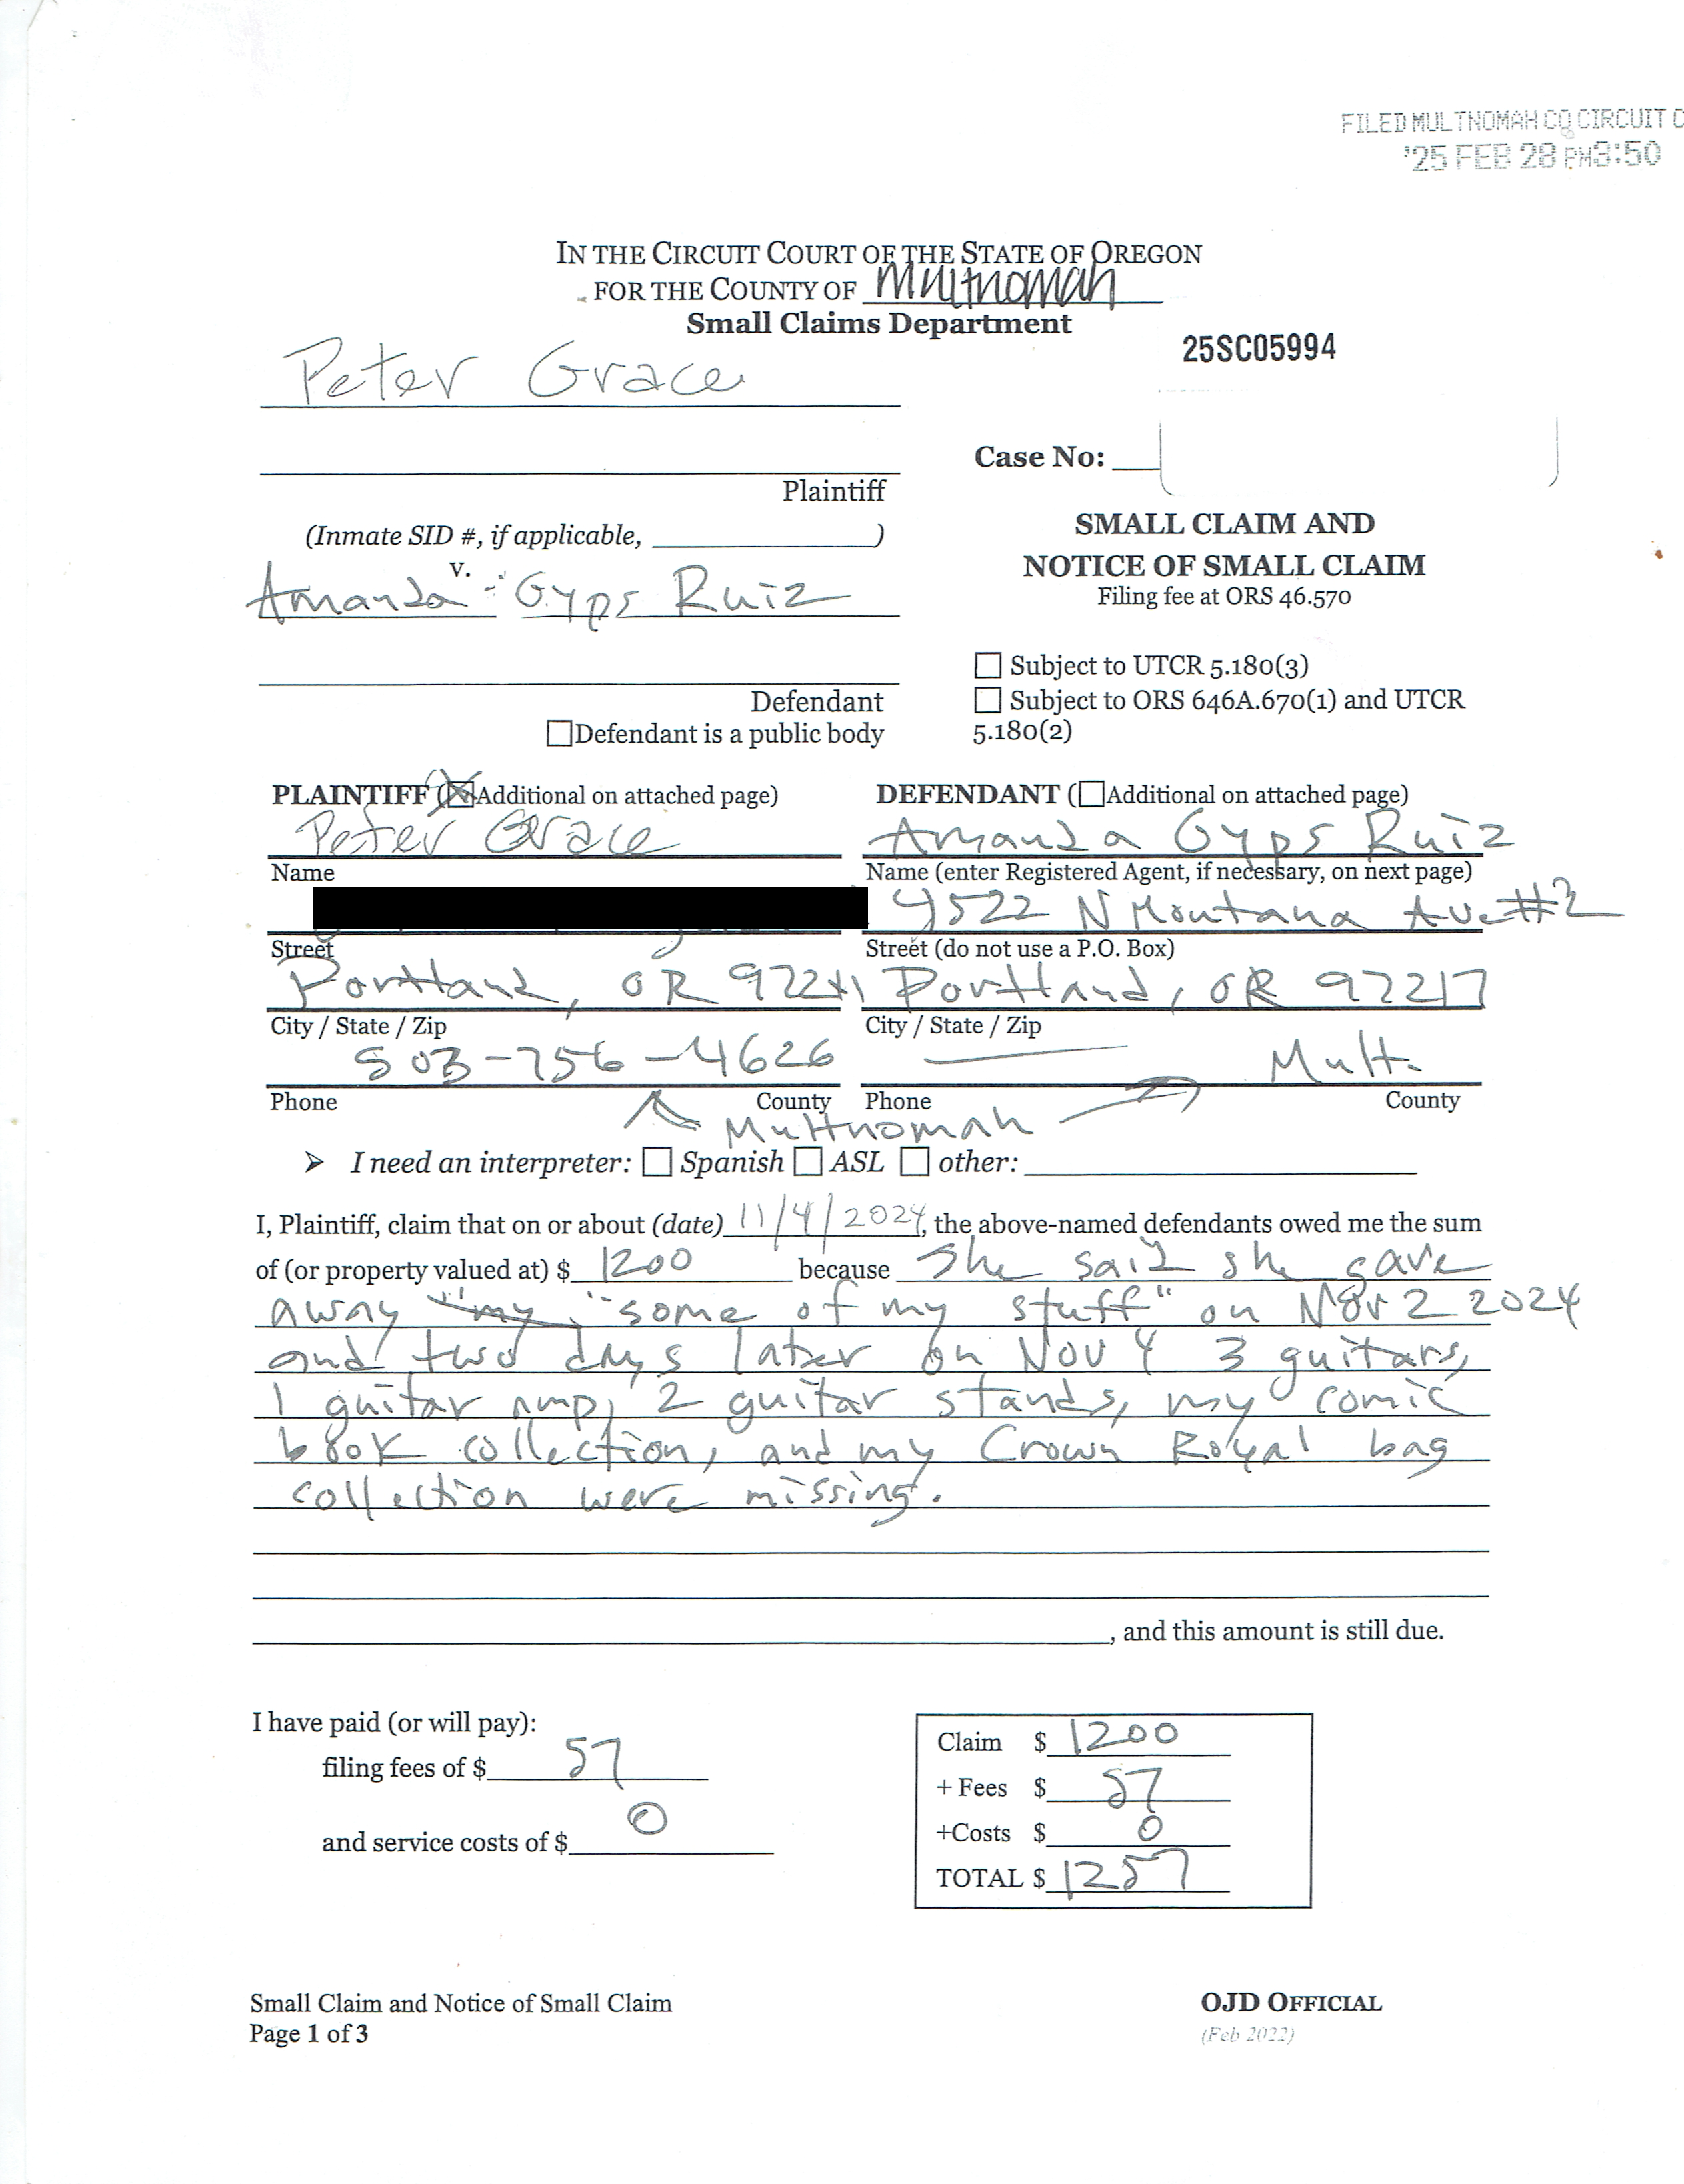 FILED MULTNOMAH CO CIRCUIT C
'25 FEB 28 PM 3:50
IN THE CIRCUIT COURT OF THE STATE OF OREGON
FOR THE COUNTY OF Multnomah
Small Claims Department
25SC05994
Peter Grace
Case No:
Plaintiff
(Inmate SID #, if applicable, )
v.
Amanda Gyps Ruiz
Defendant
Defendant is a public body
SMALL CLAIM AND
NOTICE OF SMALL CLAIM
Filing fee at ORS 46.570
Subject to UTCR 5.180(3)
Subject to ORS 646A.670(1) and UTCR
5.180(2)
PLAINTIFF (Additional on attached page)
Peter Grace
Name
Street
Portland, OR
City / State / Zip
503-756-4626
Phone County
DEFENDANT (Additional on attached page)
Amanda Gyps Ruiz
Name (enter Registered Agent, if necessary, on next page)
N Montana Ave #2
Street (do not use a P.O. Box)
Portland, OR 97217
City / State / Zip
Mult.
Phone County
Multnomah
➢ I need an interpreter: Spanish ASL other:
I, Plaintiff, claim that on or about (date) 11/4/2024, the above-named defendants owed me the sum
of (or property valued at) $ 1200 because She said she gave
away "my "some of my stuff" on Nov 2 2024
and two days later on Nov 4 3 guitars,
1 guitar amp, 2 guitar stands, my comic
book collection, and my Crown Royal bag
collection were missing.
, and this amount is still due.
I have paid (or will pay):
filing fees of $ 57
and service costs of $ 0
Claim $ 1200
+ Fees $ 57
+Costs $ 0
TOTAL $ 1257
Small Claim and Notice of Small Claim
Page 1 of 3
OJD OFFICIAL
(Feb 2022)